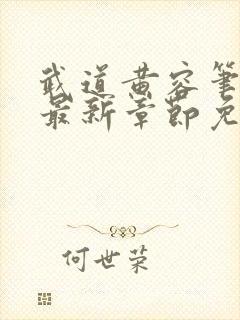 武道黄容笔
最新章节免
何世荣